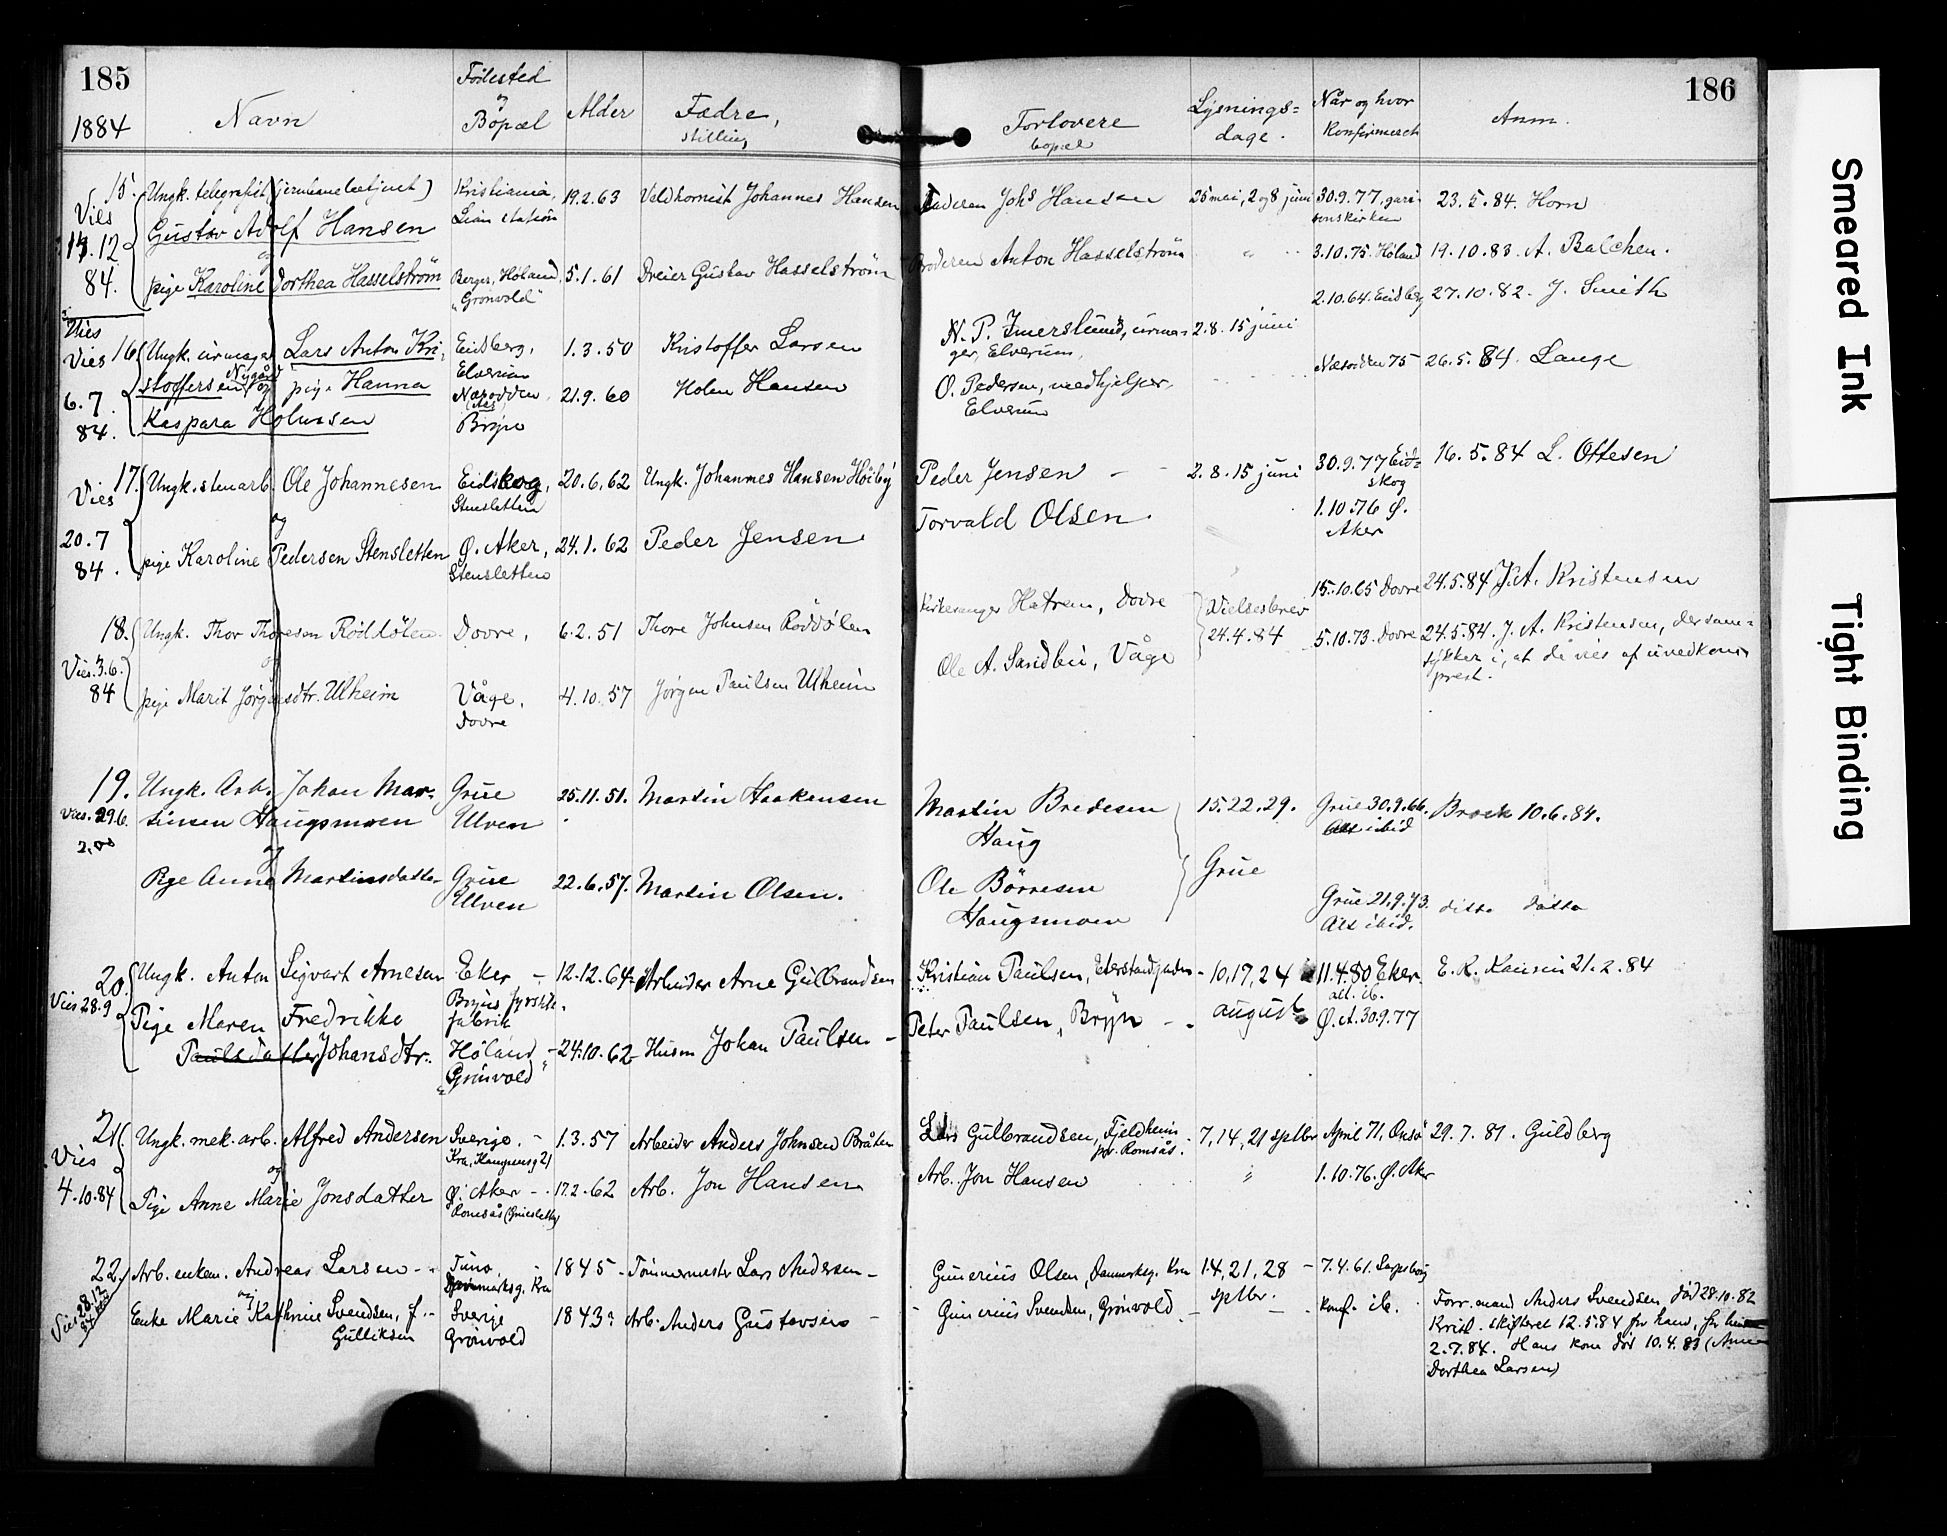 185
1884
Navn
Födested
og
Böpæl
Alder
Fædre,
stilling
Forlovere
bopæl
Lysnings=
dage.
Når og hvor
konfirmeret
Anm.
186
15.
Vies
14.12
84.
Ungk. telegrafist, jernbanebetjent)
Gustav Adolf Hansen
og
pige Karoline Dorthea Hasselström
Kristiania,
Lian station
Berger, Høland,
"Grønvold"
19.2.63
5.1.61
Valdhornist Johannes Hansen
Dreier Gustav Hasselström
Faderen Johs Hansen
Broderen Anton Hasselström
25 mai, 2 og 8 juni
30.9.77, gari-
sonskirken
3.10.75 Höland
23.5.84. Horn
19.10.83 A. Balchen.
Vies
Vies
16
6.7
84.
Ungk. urmager Lars Anton Kri-
stoffersen Nygård og pige Hanna
Kaspara Holmsen
Eidsberg,
Elverum
Næsodden
(Aas)
Bryn
1.3.50
21.9.60
Kristoffer Larsen
Holm Hansen
N. P. Imerslund, urma-
ger, Elverum,
O. Pedersen, medhjelper.
Elverum
2.8.15 juni
2.10.64. Eidsberg
Næsodden 75
27.10.82. J. Smith
26.5.84. Lange
17.
Vies
20.7
84.
Ungk. stenarb. Ole Johannesen
og
pige Karoline Pedersen Stensletten
Eidskog,
Stensletten
Ø. Aker,
Stensletten
20.6.62
24.1.62
Ungk. Johannes Hansen Höiby
Peder Jensen
Peder Jensen
Torvald Olsen
2.8.15 juni
30.9.77 Eid=
skog
1.10.76 Ø.
Aker
16.5.84 L. Ottesen
18.
Vies. 3.6.
84
Ungk. Thor Thoresen Röddölen
og
pige Marit Jørgensdtr. Ulheim
Dovre,
Våge,
Dovre
6.2.51
4.10.57
Thore Johnsen Röddölen
Jørgen Paulsen Ulheim
Kirkesanger Hatrem, Dovre
Ole A. Sandbu, Våge
Vielsesbrev
24.4.84
15.10.65 Dovre
5.10.73. Dovre
24.5.84 J. A. Kristensen
24.5.84. J. A. Kristensen, der sam=
tykker i, at de vies af uvedkom=
prest.
19.
Vies. 29.6.
Ungk. Arb. Johan Mar-
tinsen Haugsmoen
og
Pige Anne Martinsdatter
Grue
Ulven
Grue
Ulven
25.11.51.
22.6.57.
Martin Haakensen
Martin Olsen.
Martin Bredesen
Haug
Ole Börresen
Haugsmoen
15.22.29.
Grue
Grue 30.9.66.
Att ibid
Grue 21.9.73.
Att ibid.
Brock 10.6.84.
ditto ditto
20
Vies 28.9
Ungk. Anton Sigvart Arnesen
Pige Maren Fredrikke
Paulsdatter Johansdtr.
Eker -
Bryns fyrstik-
fabrik
Høland -
"Grönvold"
12.12.64
24.10.62
Arbeider Arne Gulbrandsen
Husm Johan Paulsen -
Kristian Paulsen, Eterstadgaden
Peter Paulsen, Bryn -
10, 17, 24
august
11.4.80 Eker
att. ib.
Ø.A. 30.9.77
21.2.84
21
Vies
4.10.84
Ungk. mek. arb. Alfred Andersen
og
Pige Anne Marie Jonsdatter
Sverige. -
Kra, Kampensg 21
Ø. Aker -
Romsås
1.3.57
17.2.62
Arbeider Anders Johnsen Bråten
Arb. Jon Hansen
Lars Gulbrandsen, Fjeldheim
pr. Romsås.
Arb. Jon Hansen
7, 14, 21 sptbr
"
April 71, Onsö
1.10.76. Ø. Aker
29.7.81. Guldberg
22.
Vies 28.12
84
Arb. enkem. Andreas Larsen -
og
Enke Marie Kathrine Svendsen, f. -
Gulliksen
Tune
Danmarksg. Kra
Sverige
Grönvold
1845 -
1843?
Tömmermester Lars Andersen -
Arb. Anders Gustavsen -
Gunerius Olsen, Danmarksg. Kra
Gunerius Svendsen, Grönvold -
14, 21, 28 -
sptbr.
7.4.61. Sarpsborg
konf. ib.
Forr. mand Anders Svendsen död 28.10.82
Krist. skifteret 12.5.84 for ham, for hen
2.7.84. Hans kone död 10.4.83 (Anne
Dorthea Larsen)
Smeared Ink
Tight Binding